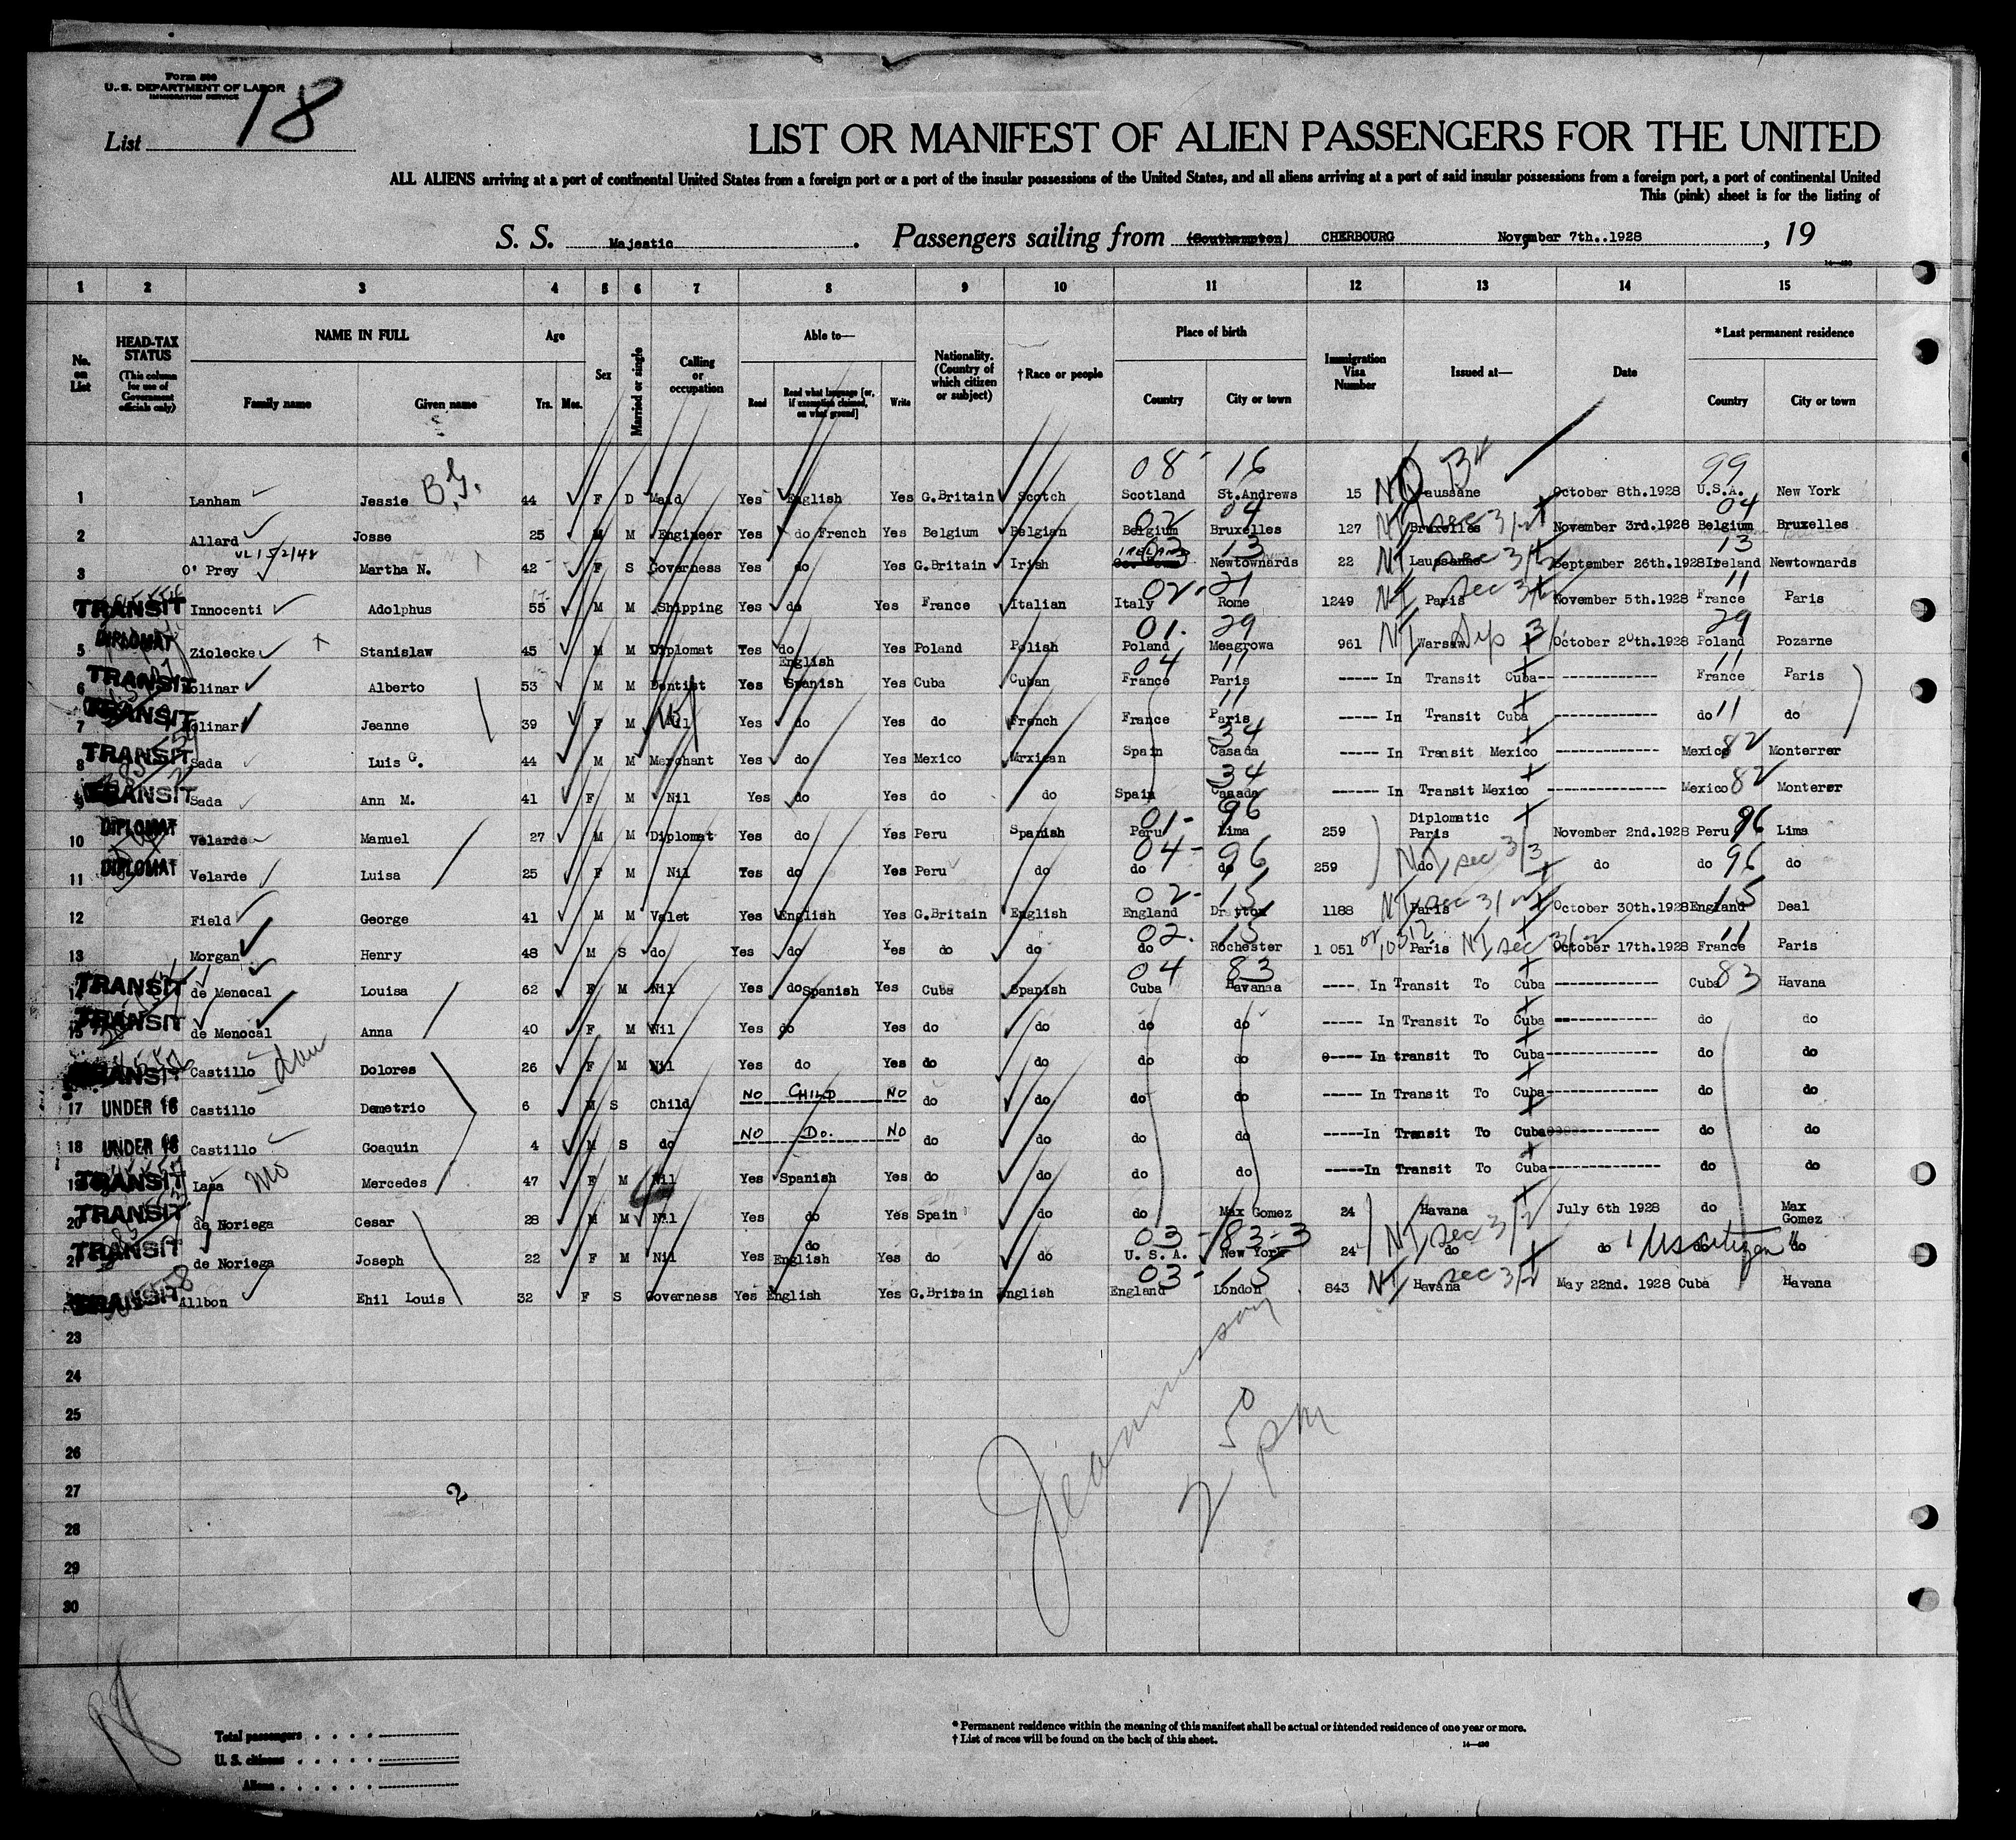 Form 500
U. S. DEPARTMENT OF LABOR
IMMIGRATION SERVICE
List 18
LIST OR MANIFEST OF ALIEN PASSENGERS FOR THE UNITED
ALL ALIENS arriving at a port of continental United States from a foreign port or a port of the insular possessions of the United States, and all aliens arriving at a port of said insular possessions from a foreign port, a port of continental United
This (pink) sheet is for the listing of
S. S. Majestic. Passengers sailing from (Southampton) CHERBOURG November 7th..1928, 19
1 2 3 4 5 6 7 8 9 10 11 12 13 14 15
No. on List
HEAD-TAX STATUS (This column for use of Government officials only)
NAME IN FULL Family name Given name
Age Yrs. Mos.
Sex
Married or single
Calling or occupation
Able to— Read Read what language [or, if exemption claimed, on what ground] Write
Nationality. (Country of which citizen or subject)
† Race or people
Place of birth Country City or town
Immigration Visa Number
Issued at—
Date
* Last permanent residence Country City or town
08 - 16 99
1 Lanham Jessie B.G. 44 F D Maid Yes English Yes G.Britain Scotch Scotland St.Andrews 15 Laussane October 8th.1928 U.S.A. New York
02 04 04
2 Allard Josse 25 M M Engineer Yes do French Yes Belgium Belgian Belgium Bruxelles 127 NI Bruxelles sec 3/2 November 3rd.1928 Belgium Bruxelles
IRELAND 13 13
3 O' Prey Martha N. 42 F S Governess Yes do Yes G.Britain Irish Newtownards 22 NI Laussanne sec 3/2 September 26th.1928 Ireland Newtownards
02 - 21 11
TRANSIT Innocenti Adolphus 55 M M Shipping Yes do Yes France Italian Italy Rome 1249 NI Paris sec 3/2 November 5th.1928 France Paris
01 - 29 29
5 DIPLOMAT Ziolecke Stanislaw 45 M M Diplomat Yes do Yes Poland Polish Poland Meagrowa 961 NI Warsaw October 20th.1928 Poland Pozarne
04 11 11
6 TRANSIT Molinar Alberto 53 M M Dentist Yes English Spanish Yes Cuba Cuban France Paris ----- In Transit Cuba-- ------------- France Paris
11 11
7 TRANSIT Molinar Jeanne 39 F M Nil Yes do Yes do French France Paris ----- In Transit Cuba ------------- do do
34 82
8 TRANSIT Sada Luis G. 44 M M Merchant Yes do Yes Mexico Mrxican Spain Casada ----- In Transit Mexico ------------- Mexico Monterrer
34 82
9 TRANSIT Sada Ann M. 41 F M Nil Yes do Yes do do Spain Casada ----- In Transit Mexico ------------- Mexico Monterer
01 - 96 96
10 DIPLOMAT Velarde Manuel 27 M M Diplomat Yes do Yes Peru Spanish Peru Lima 259 Diplomatic Paris November 2nd.1928 Peru Lima
04 - 96 96
11 DIPLOMAT Velarde Luisa 25 F M Nil Yes do Yes Peru do do do 259 NI do sec 3/3 do do do
02 - 15 15
12 Field George 41 M M Valet Yes English Yes G.Britain English England Drayton 1188 NI Paris sec 3/2 October 30th.1928 England Deal
02 - 15 11
13 Morgan Henry 48 M S do Yes do Yes do do do Rochester 1 051 or 10512 Paris NI sec 3/2 October 17th.1928 France Paris
04 83 83
TRANSIT de Menocal Louisa 62 F M Nil Yes do Spanish Yes Cuba Spanish Cuba Havanaa ----- In Transit To Cuba ------------- Cuba Havana
15 TRANSIT de Menocal Anna 40 F M Nil Yes do Yes do do do do ----- In Transit To Cuba ------------- do do
TRANSIT Castillo Dolores 26 F M Nil Yes do Yes do do do do ----- In transit To Cuba------------- do do
17 UNDER 16 Castillo Demetrio 6 M S Child NO CHILD NO do do do do ----- In Transit To Cuba------------- do do
18 UNDER 16 Castillo Goaquin 4 M S do NO DO. NO do do do do -----In Transit To Cuba------------- do do
19 TRANSIT Lasa Mercedes 47 F M Nil Yes Spanish Yes do do do do -----In Transit To Cuba------------- do do
20 TRANSIT de Noriega Cesar 28 M M Nil Yes do Yes Spain do do Max Gomez 24 Havana July 6th 1928 do Max Gomez
03 - 83-3
21 TRANSIT de Noriega Joseph 22 F M Nil Yes do English Yes do do U. S. A. New York 24 NI sec 3/2 do do US citizen do
03 - 15
TRANSIT Allbon Ehil Louis 32 F S Governess Yes English Yes G.Britain English England London 843 NI Havana sec 3/2 May 22nd. 1928 Cuba Havana
23
24
25
26
27 2
28
29
30
2 50 PM
Total passengers
U. S. citizens
Aliens
* Permanent residence within the meaning of this manifest shall be actual or intended residence of one year or more.
† List of races will be found on the back of this sheet.
14—430